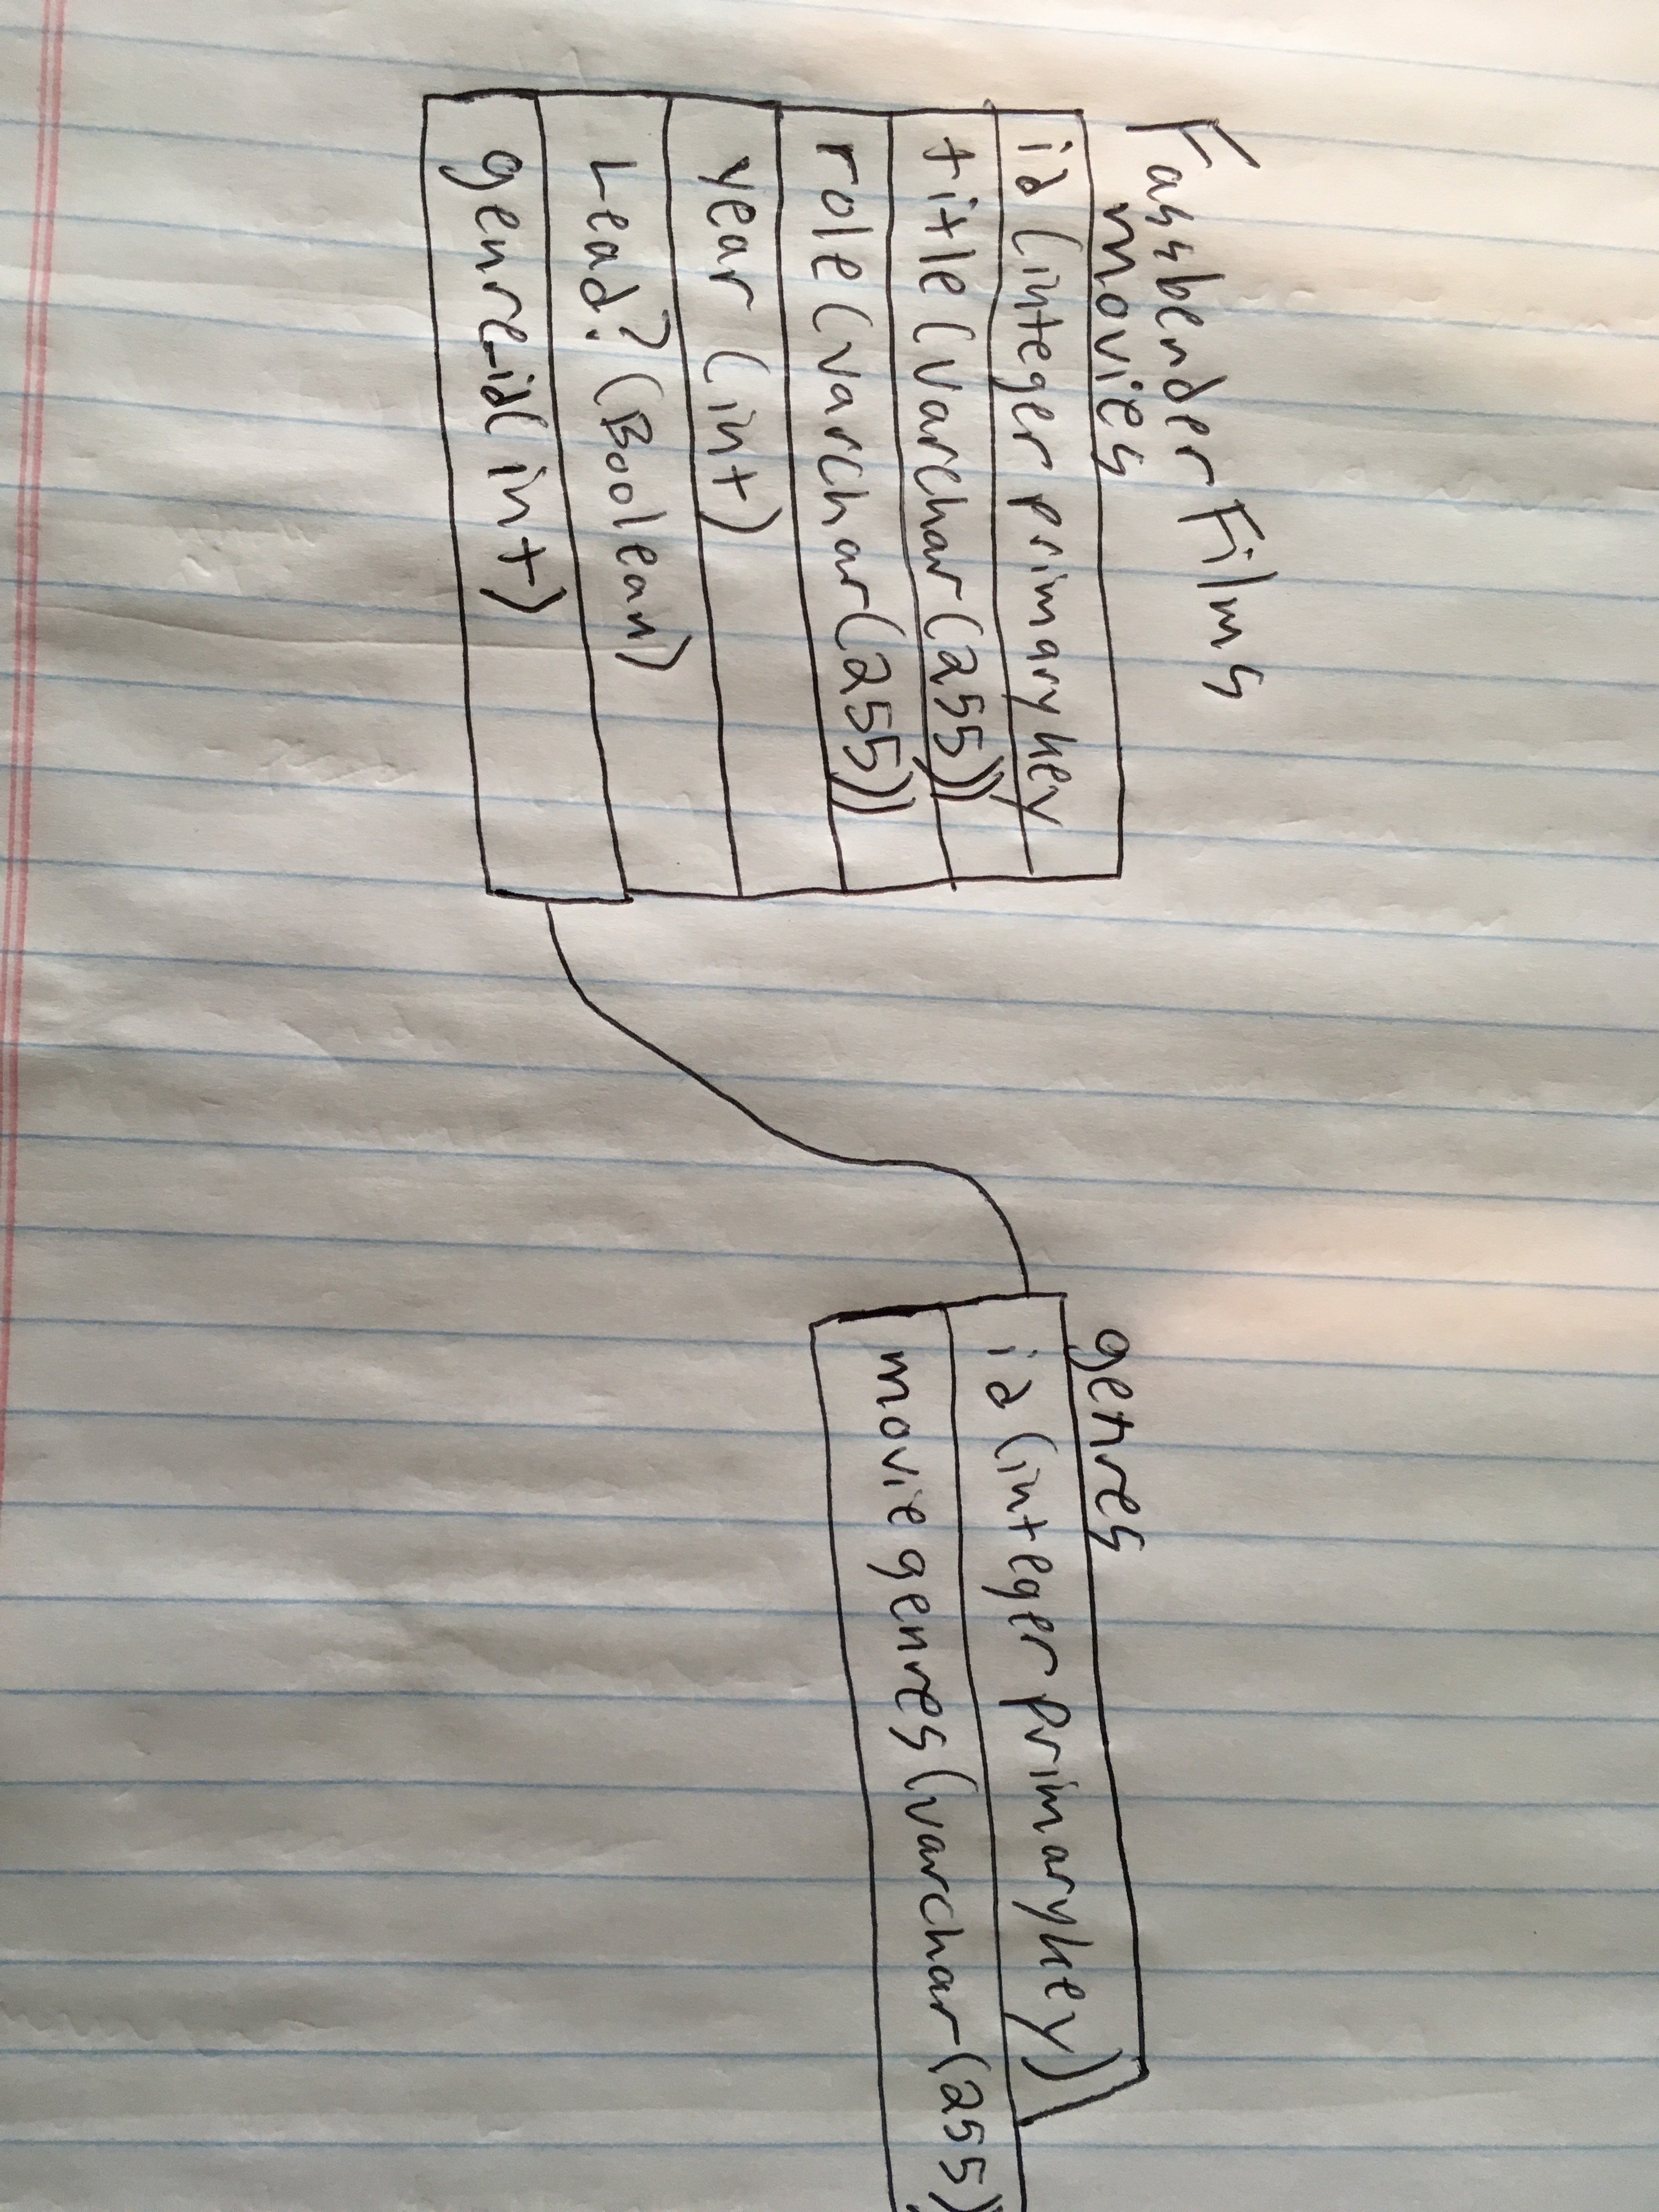 Fassbender Films
movies
id (integer primary key
title (varchar (255))
role (varchar (255))
year (int)
Lead? (Boolean)
genre_id (int)
genres
id (integer primary key)
movie genres (varchar (255)